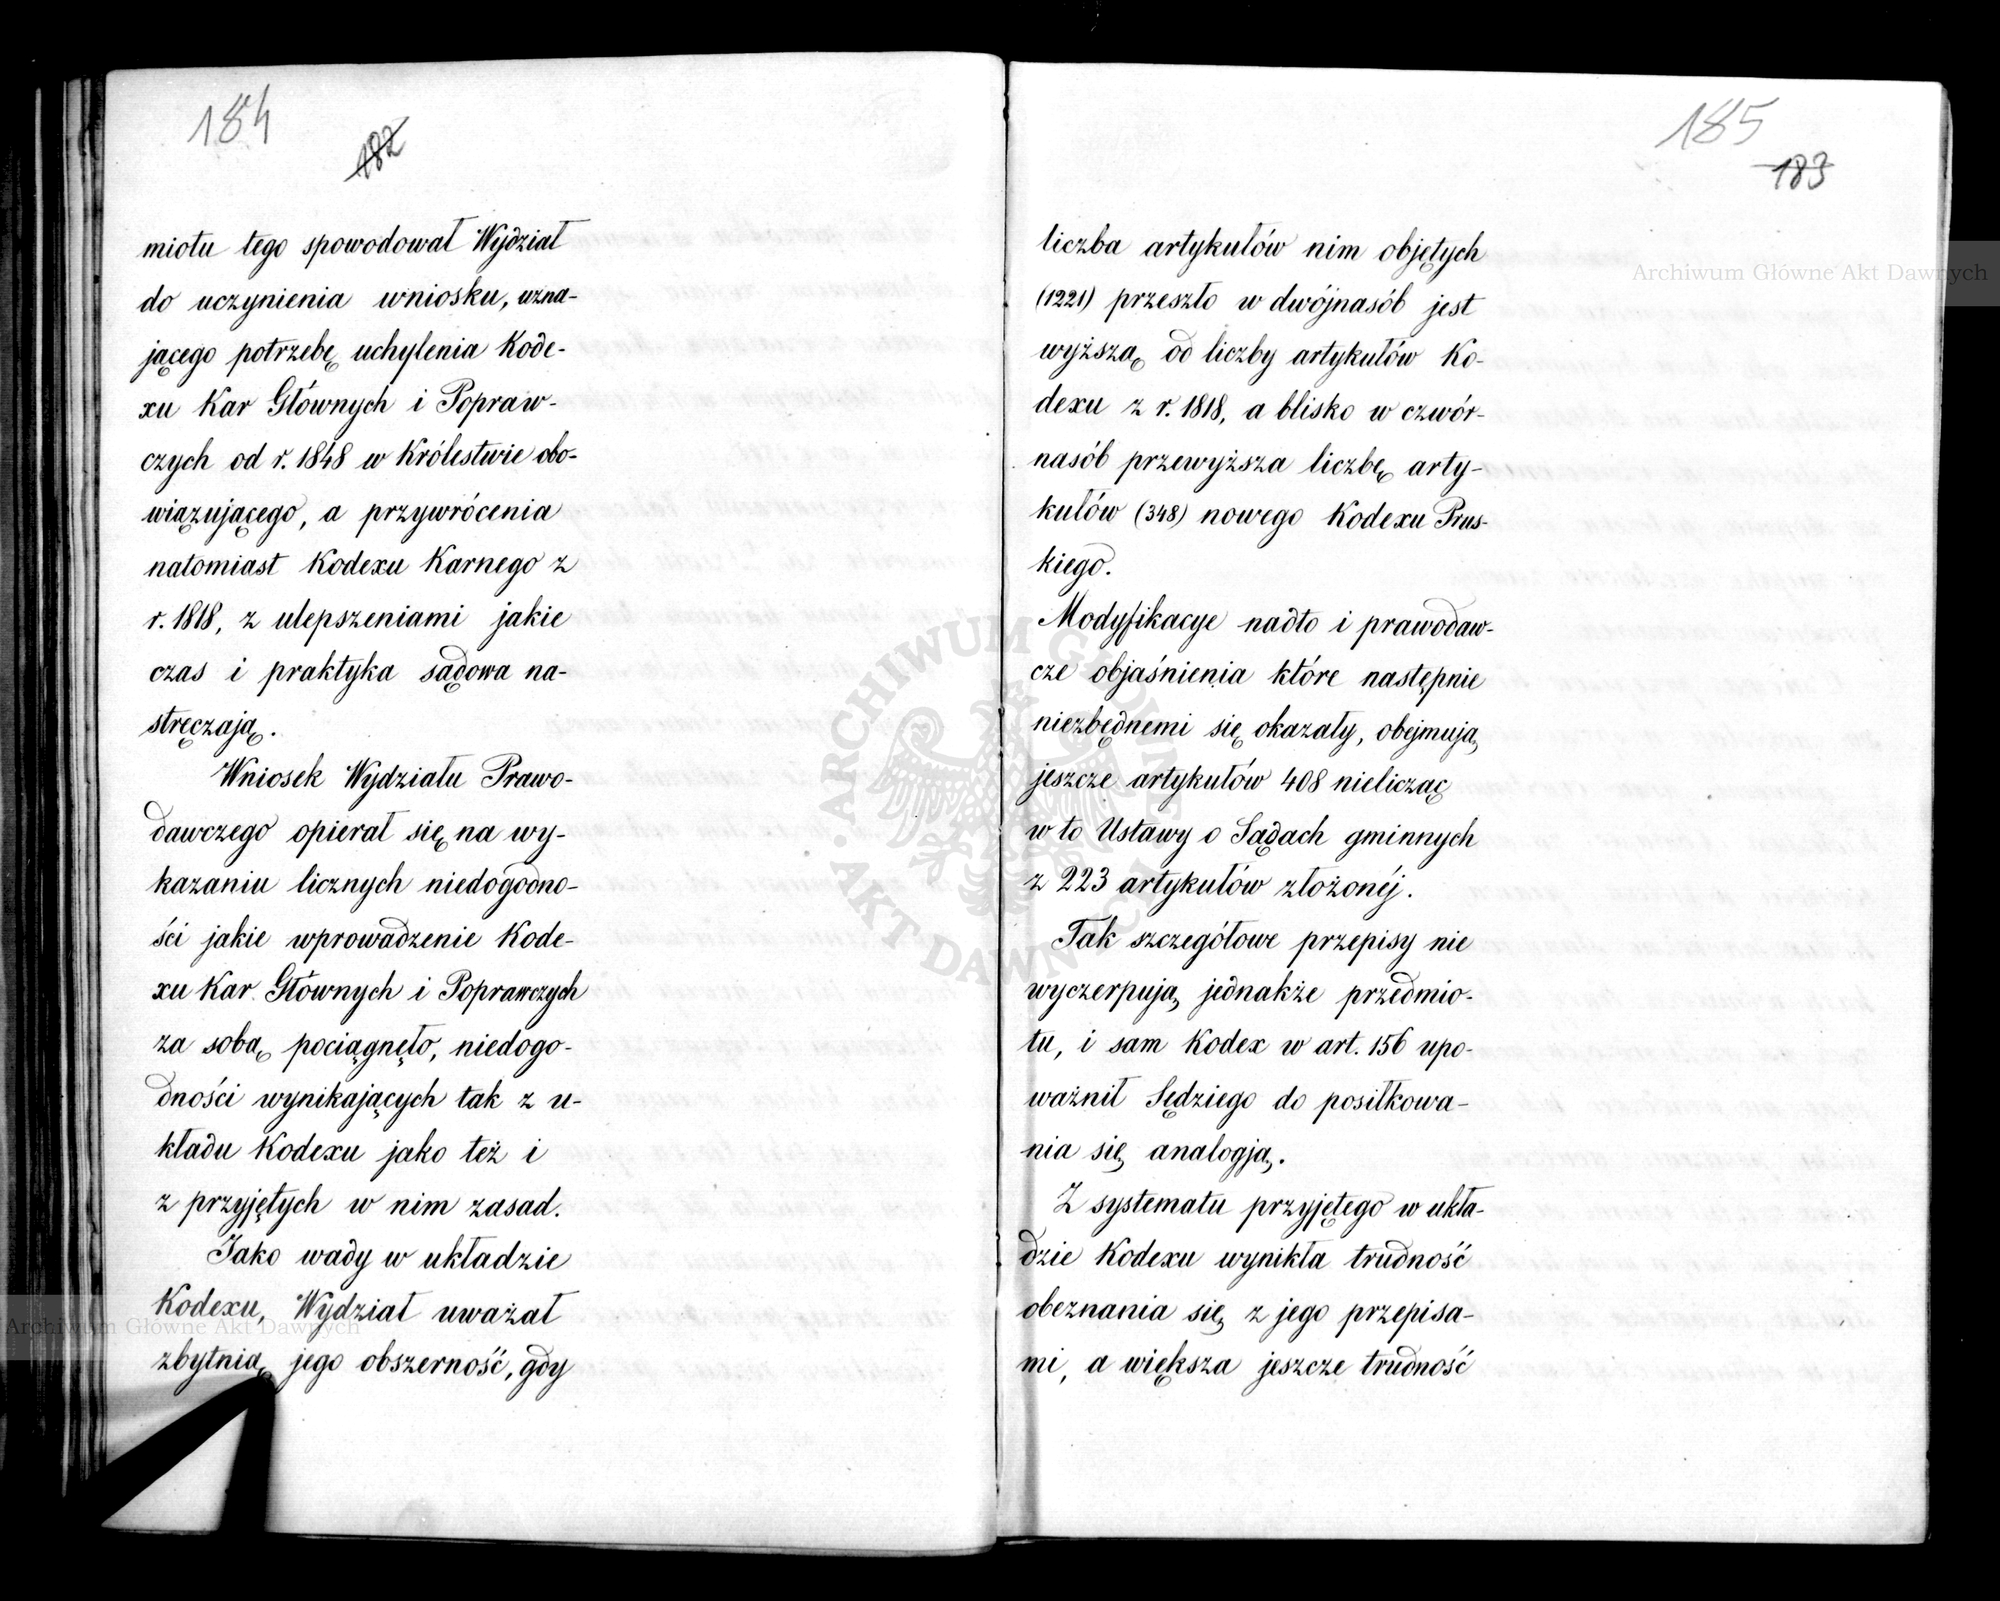 184
182
miotu tego spowodował Wydział
do uczynienia wniosku, uzna-
jącego potrzebę uchylenia Kode-
xu Kar Głównych i Popraw-
czych od r. 1848 w Królestwie obo-
wiązującego, a przywrócenia
natomiast Kodexu Karnego z
r. 1818, z ulepszeniami jakie
czas i praktyka sądowa na-
stręczają.
Wniosek Wydziału Prawo-
dawczego opierał się na wy-
kazaniu licznych niedogodno-
ści jakie wprowadzenie Kode-
xu Kar Głównych i Poprawczych
za sobą pociągnęło, niedogo-
dności wynikających tak z u-
kładu Kodexu jako też i
z przyjętych w nim zasad.
Jako wady w układzie
Kodexu, Wydział uważał
zbytnią jego obszerność, gdy
185
183
liczba artykułów nim objętych
(1221) przeszło w dwójnasób jest
wyższą od liczby artykułów Ko-
dexu z r. 1818, a blisko w czwór-
nasób przewyższa liczbę arty-
kułów (348) nowego Kodexu Prus-
kiego.
Modyfikacye nadto i prawodaw-
cze objaśnienia które następnie
niezbędnemi się okazały, obejmują
jeszcze artykułów 408 nielicząc
w to Ustawy o Sądach gminnych
z 223 artykułów złożonéj.
Tak szczegółowe przepisy nie
wyczerpują jednakże przedmio-
tu, i sam Kodex w art. 156 upo-
ważnił Sędziego do posiłkowa-
nia się analogją.
Z systematu przyjętego w ukła-
dzie Kodexu wynikła trudność
obeznania się z jego przepisa-
mi, a większa jeszcze trudność
Archiwum Główne Akt Dawnych
Archiwum Główne Akt Dawnych
ARCHIWUM GŁÓWNE AKT DAWNYCH